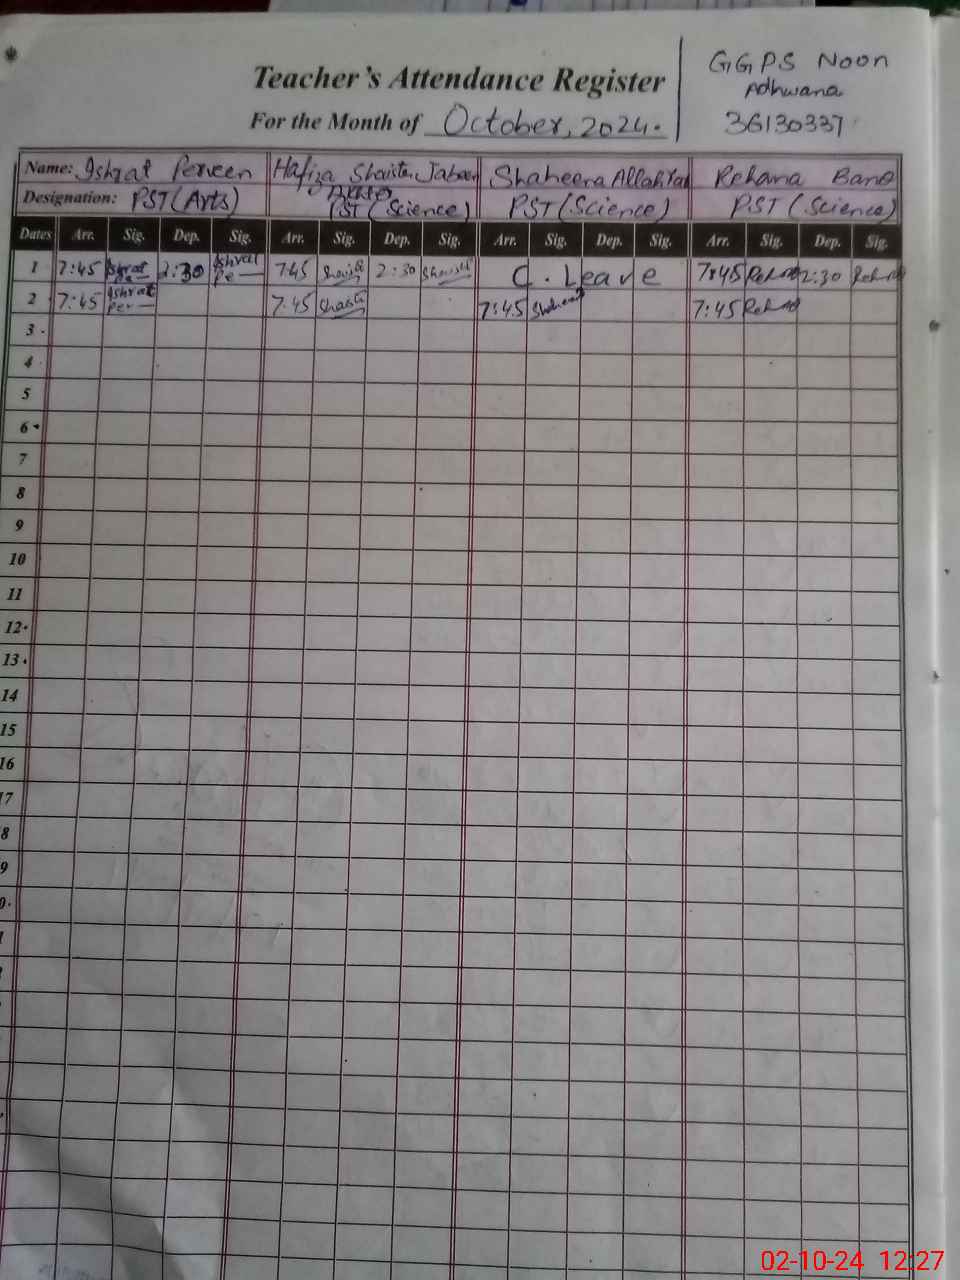 Teacher's Attendance Register
GGPS Noon
Adhwana
For the Month of October, 2024.
36130337
Name: Ishrat Perveen Hafiza Shaista Jabeen Shaheena Allah Yar Rehana Bano
Designation: PST (Arts) PST (Science) PST (Science) PST (Science)
Dates Arr. Sig. Dep. Sig. Arr. Sig. Dep. Sig. Arr. Sig. Dep. Sig. Arr. Sig. Dep. Sig.
1 7:45 Ishrat Pe 2:30 Ishrat Pe 7:45 Shaista 2:30 Shaista C. Leave 7:45 Rehana 2:30 Rehana
2 7:45 Ishrat Per 7:45 Shaista 7:45 Shaheena 7:45 Rehana
3
4
5
6
7
8
9
10
11
12
13
14
15
16
17
8
9
0
1
02-10-24 12:27